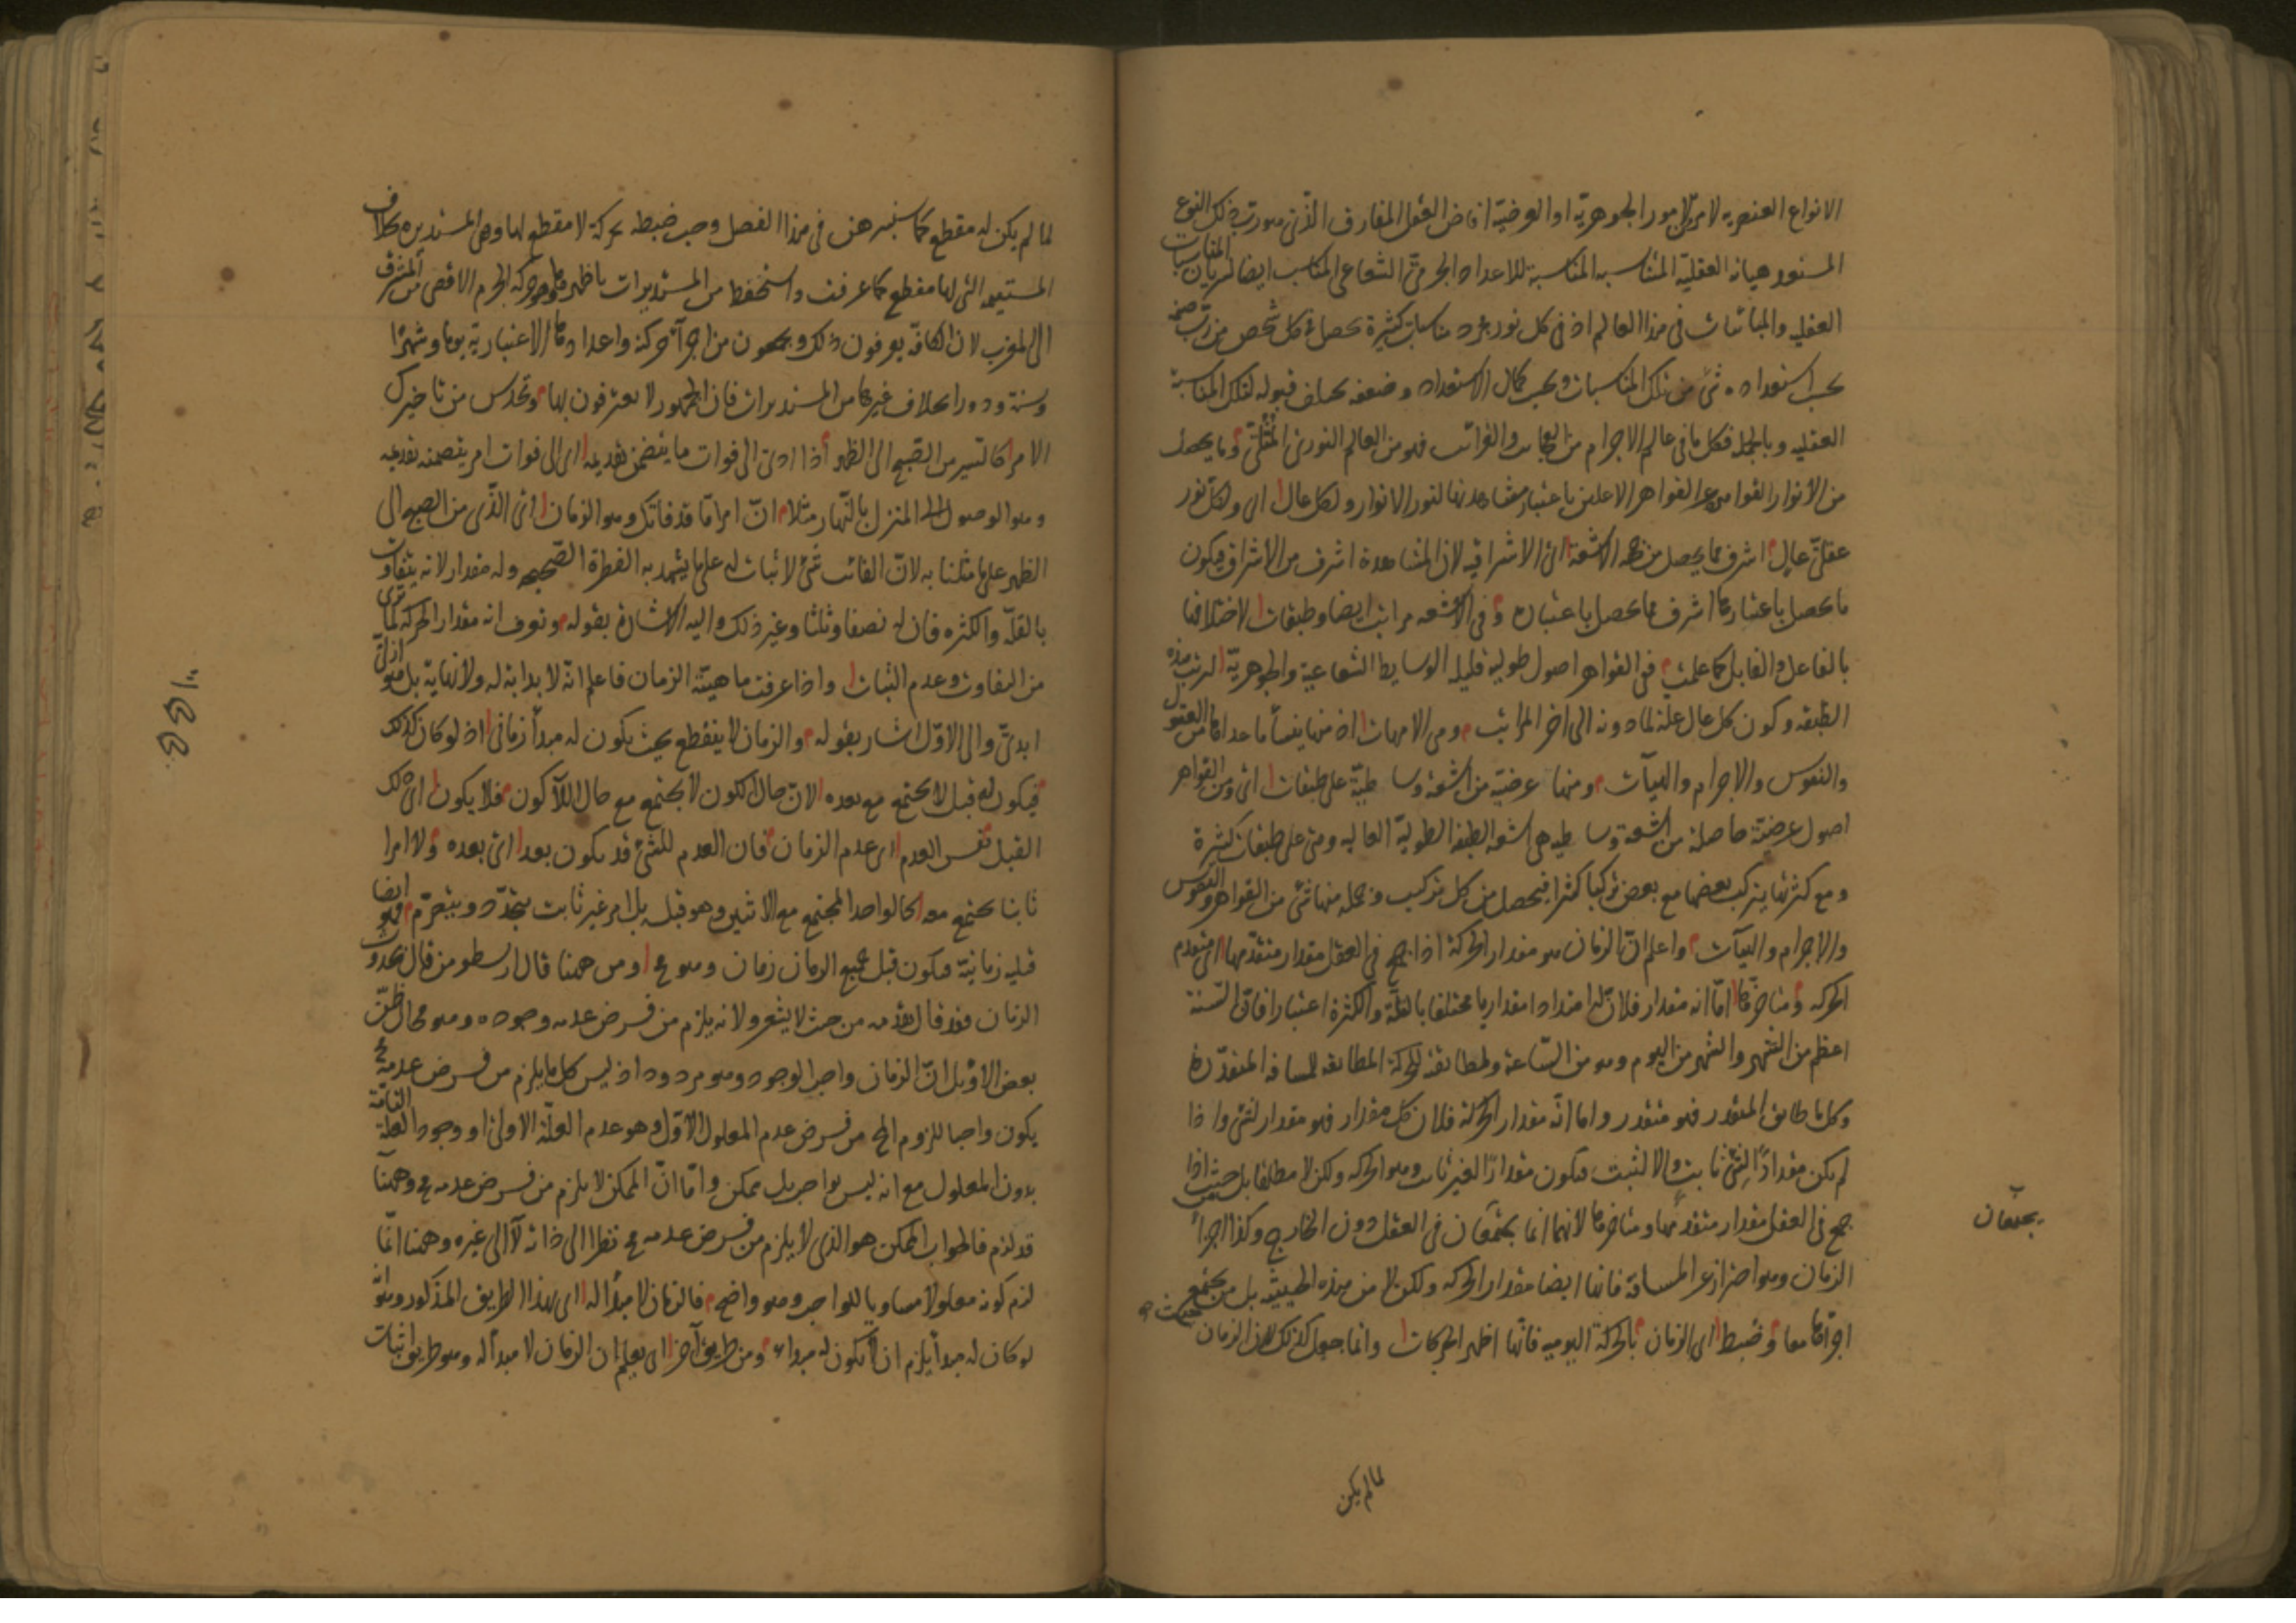 الانواع العنصريه لامر من الامور الجوهريّة او العرضية افاض العقل المفارق الذى هو رب ذلك النوع
المستعد هيأته العقليّة المناسبه للاعداد الجرمىّ الشعاعى المناسب ايضا لسريان المناسبات
العقليه والمباينات فى هذا العالم اذ فى كل نور مجرد مناسبات كثيرة يحصل فى كل شخص من رب صنمه
بحسب استعداده شئ من تلك المناسبات وبحسب كمال الاستعداد وضعفه يختلف قبوله لتلك المناسبة
العقليه وبالجمله فكل ما فى عالم الاجرام من العجائب والغرائب فهو من العالم النورى المثالىّ وما يحصل
من الأنوار القواهر عن القواهر الاعلين باعتبار مشاهدتها لنور الانوار ولكل عال اى ولكل نور
عقلىّ عالٍ اشرف مما يحصل من جهة الاشعة اى الاشراقيه لان المشاهدة اشرف من الأشراق فيكون
ما يحصل باعتبارها اشرف مما يحصل باعتباره وفى الاشعه مراتب ايضا وطبقات لاختلافها
بالفاعل والقابل كما علمت ففى القواهر اصول طوليه قليله الوسايط الشعاعية والجوهريّة لترتب هذه
الطبقه وكون كل عال علة لما دونه الى اخر المراتب وهى الامهات اذ منها ينشأ ما عداها من العقول
والنفوس والاجرام والهيآت ومنها عرضية من اشعة وساطيّة على طبقات اى ومن القواهر
اصول عرضيّة حاصلة من اشعة وساطيه هى اشعه الطبقة الطوليّة العاليه وهى على طبقات كثيرة
ومع كثرتها يتركب بعضها مع بعض تركيبا كثيرا فيحصل من كل تركيب وجمله منها شئ من القواهر والنفوس
والاجرام والهيآت واعلم انّ الزمان هو مقدار الحركة اذا جمع فى العقل مقدار متقدمها اى متقدم
الحركه ومتاخرها امّا انه مقدار فلانّ له امتدادا مقداريا مختلفا بالقلّة والكثرة اعتبارا فانّ السّنة
اعظم من الشهر والشهر من اليوم وهو من السّاعة ولمطابقته للحركة المطابقه للمسافه المتقدّرة
وكل ما طابق المتقدر فهو متقدر واما انّه مقدار الحركة فلان كل مقدار فهو مقدار لشئ واذا
لم يكن مقدارًا لشئ ثابت والا لثبت فيكون مقدارًا لغير ثابت وهو الحركه ولكن لا مطلقا بل حيث اذا
جمع فى العقل مقدار متقدمها ومتاخرها لانهما انما يجتمعان فى العقل دون الخارج وكذا اجزاء
الزمان وهو احتراز عن المسافة فانها ايضا مقدار الحركه ولكن لا من هذه الحيثيّه بل من حيث يجتمع
اجزاؤها معا وضبط اى الزمان بالحركة اليوميه فانّها اظهر الحركات وانما جعل كذلك لان الزمان
يجتمعان
لما لم يكن
لما لم يكن له مقطع كما سنبرهن فى هذا الفصل وجب ضبطه بحركة لا مقطع لها وهى المستديره بخلاف
المستقيمه التى لها مقطع كما عرفت واستحفظ من المستديرات باظهرها وهو حركه الجرم الاقصى من المشرق
الى المغرب لان الكافّه يعرفون ذلك ويجعلون من اجزآء حركته واعدادها الاعتبارية يوما وشهرًا
وسنة ودورا بخلاف غيرها من المستديرات فان الجمهور لا يعترفون بها وتحدس من تاخيرك
الامر كالسير من الصّبح الى الظهر اذا ادى الى فوات ما يتضمن تقديمه اى الى فوات امر يتضمنه تقديمه
وهو الوصول الى المنزل بالنّهار مثلا انّ امرا مّا قد فاتك وهو الزمان اى الّذى من الصبح الى
الظهر على ما مثلنا به لانّ الفائت شئ لا ثبات له على ما يشهد به الفطرة الصّحيحه وله مقدار لانه يتفاوت
بالقلّه والكثره فان له نصفا وثلثا وغير ذلك واليه الاشارة بقوله وتعرف انه مقدار الحركه لما ترى
من التفاوت وعدم الثبات واذا عرفت ماهيّة الزمان فاعلم انّه لا بداية له ولا نهاية بل هو ازلىّ
ابدىّ والى الاوّل اشار بقوله والزمان لا ينقطع بحيث يكون له مبدأ زمانى اذ لو كان كذلك
فيكون له قبل لا يجتمع مع بعده لانّ حال الكون لا يجتمع مع حال اللاكون فلا يكون اى ذلك
القبل نفس العدم اى عدم الزمان فان العدم للشئ قد يكون بعد اى بعده ولا امرا
ثابتا يجتمع معه كالواحد المجتمع مع الاثنين وهو قبله بل امر غير ثابت يتجدّد ويتصرّم فهو ايضا
قبليه زمانيّة فيكون قبل جميع الزمان زمان وهو مح ومن ههنا قال ارسطو من قال بحدوث
الزمان فقد قال بقدمه من حيث لا يشعر ولانه يلزم من فرض عدمه وجوده وهو محال ظنّ
بعض الاوايل انّ الزمان واجب الوجود وهو مردود اذ ليس كل ما يلزم من فرض عدمه مح
يكون واجبا للزوم المح من فرض عدم المعلول الاوّل وهو عدم العلّة الاولى او وجود العلّة التامّة
بدون المعلول مع انه ليس بواجب بل ممكن وامّا انّ الممكن لا يلزم من فرض عدمه مح وههنا
قد لزم فالجواب الممكن هو الذى لا يلزم من فرض عدمه مح نظرا الى ذاته لا الى غيره وههنا انّما
لزم كونه معلولا مساويا للواجب وهو واضح فالزمان لا مبدأ له اى لهذا الطريق المذكور وهو انّه
لو كان له مبدأ يلزم ان لا يكون له مبداء ومن طريق آخر اى يعلم ان الزمان لا مبدأ له وهو طريق اثبات